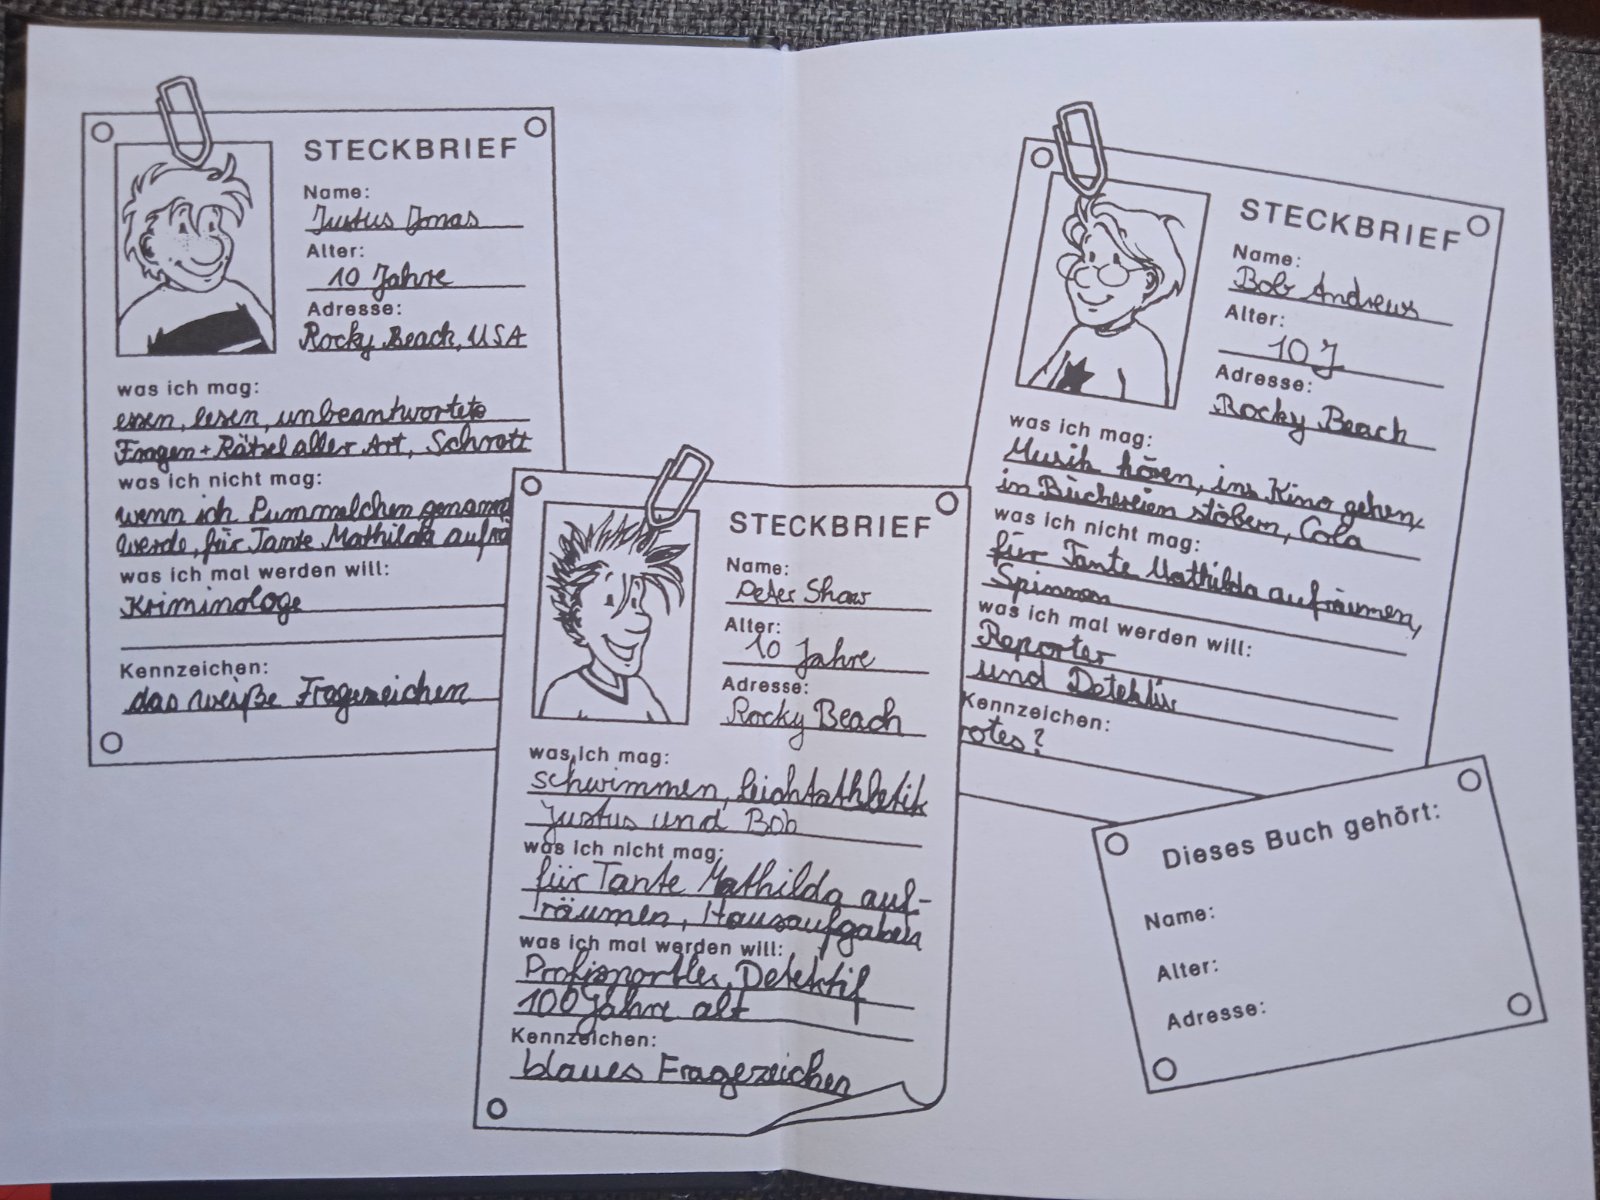 STECKBRIEF
Name:
Justus Jonas
Alter:
10 Jahre
Adresse:
Rocky Beach, USA
was ich mag:
essen, lesen, unbeantwortete
Fragen + Rätsel aller Art, Schrott
was ich nicht mag:
wenn ich Pummelchen genannt
werde, für Tante Mathilda aufrä
was ich mal werden will:
Kriminologe
Kennzeichen:
das weiße Fragezeichen
STECKBRIEF
Name:
Peter Shaw
Alter:
10 Jahre
Adresse:
Rocky Beach
was ich mag:
schwimmen, Leichtathletik
Justus und Bob
was ich nicht mag:
für Tante Mathilda auf-
räumen, Hausaufgaben
was ich mal werden will:
Profisportler, Detektif
100 Jahre alt
Kennzeichen:
blaues Fragezeichen
STECKBRIEF
Name:
Bob Andrews
Alter:
10 J
Adresse:
Rocky Beach
was ich mag:
Musik hören, ins Kino gehen,
in Büchereien stöbern, Cola
was ich nicht mag:
für Tante Mathilda aufräumen,
Spinnen
was ich mal werden will:
Reporter
und Detektiv
Kennzeichen:
rotes?
Dieses Buch gehört:
Name:
Alter:
Adresse: